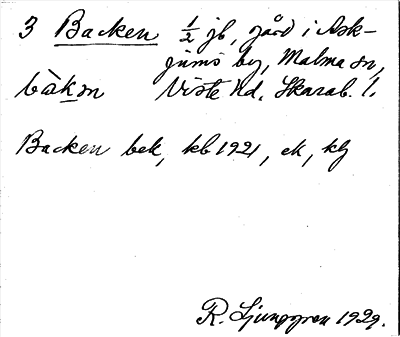 3 Backen 1/2 jb, gård i Ask-
jums by, Malma sn,
bàkɘn Viste hd. Skarab. l.
Backen bek, kb 1921, ek, kg
R. Ljunggren 1929.